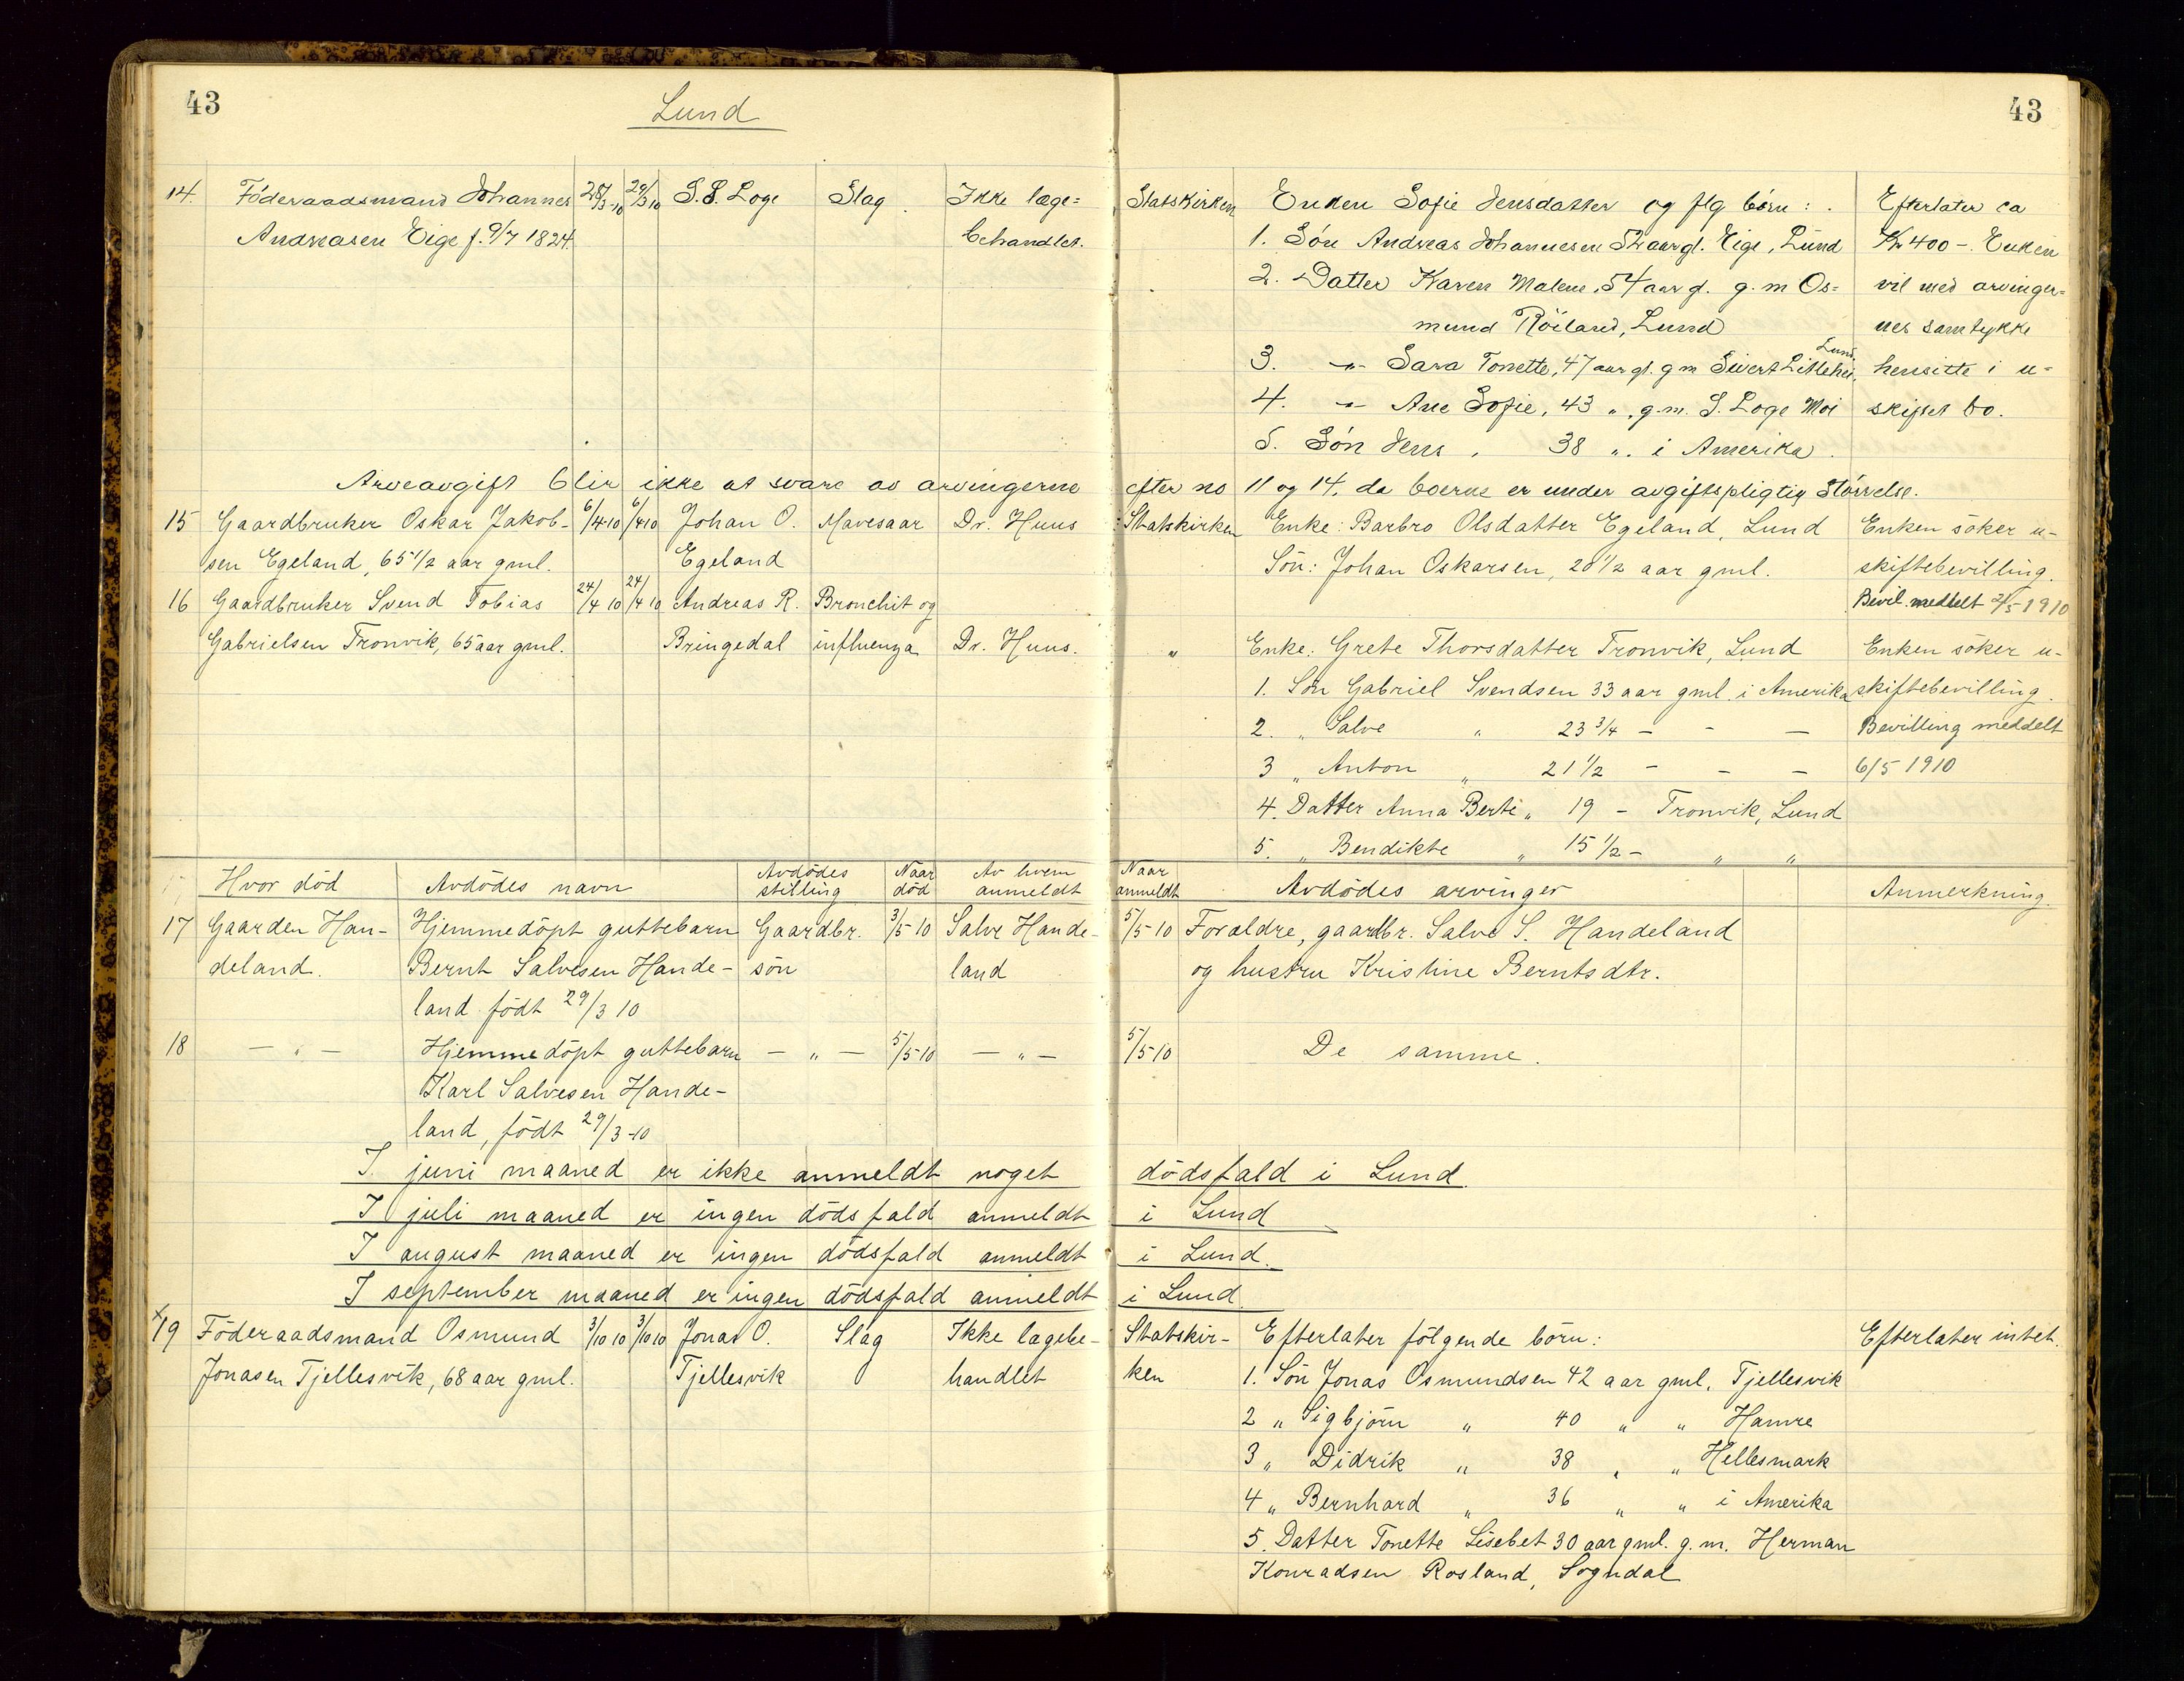 43
Lund
14. Föderaadsmand Johannes 28/3-10 29/3 10 S. S. Loge Slag. Ikke læge=
Andreasen Eige f. 9/7 1824. behandlet.
Arveavgift blir ikke at svare av arvingerne
15 Gaardbruker Oskar Jakob- 6/4 10 6/4 10 Johan O. Mavesaar Dr. Huus
sen Egeland, 65 1/2 aar gml. Egeland
16 Gaardbruker Svend Tobias 24/4 10 24/4 10 Andreas R. Bronchit og
Gabrielsen Tronvik, 65 aar gml. Bringedal influenza Dr. Huus.
Hvor död Avdödes navn Avdödes stilling Naar död Av hvem anmeldt
17 Gaarden Han- Hjemmedöpt guttebarn Gaardbr. 3/5-10 Salve Hande-
deland. Bernt Salvesen Hande- sön land
land födt 29/3 10
18 — „ — Hjemmedöpt guttebarn — „ — 5/5-10 — „ —
Karl Salvesen Hande-
land, födt 29/3-10
I juni maaned er ikke anmeldt noget
I juli maaned er ingen dödsfald anmeldt
I august maaned er ingen dödsfald anmeldt
I september maaned er ingen dödsfald anmeldt
19 Föderaadsmand Osmund 3/10 10 3/10 10 Jonas O. Slag Ikke lægebe-
Jonasen Tjellesvik, 68 aar gml. Tjellesvik handlet
43
Statskirken Enken Sofie Jensdatter og flg börn:. Efterlater ca
1. Sön Andreas Johannesen 52 aar gl. Eige, Lund Kr 400 –. Enken
2. Datter Karen Malene, 54 aar g. g. m Os= vil med arvinger=
mund Röiland, Lund nes samtykke
3. –„– Sara Tonette, 47 aar gl. g m Sivert Litlehei, Lund. hensitte i u-
4. –„– Ane Sofie, 43 „. g. m. S. Loge Moi skiftet bo.
5. Sön Jens, 38 „. i Amerika.
efter no 11 og 14, da boerne er under avgiftspligtig Störrelse.
Statskirken Enke: Barbro Olsdatter Egeland, Lund Enken söker u-
Sön: Johan Oskarsen, 28 1/2 aar gml. skiftebevilling.
Bevil. meddelt 2/5 1910
„ Enke: Grete Thorsdatter Tronvik, Lund Enken söker u-
1. Sön Gabriel Svendsen 33 aar gml. i Amerika skiftebevilling.
2. „ Salve „ 23 3/4 – – — Bevilling meddelt
3 „ Anton „ 21 1/2 – – – 6/5 1910
4. Datter Anna Berte „ 19 – Tronvik, Lund
5. „ Bendikte „ 15 1/2 – „ „
Naar anmeldt Avdödes arvinger Anmerkning.
5/5-10 Forældre, gaardbr. Salve S. Handeland
og hustru Kristine Berntsdtr.
5/5-10 De samme.
dödsfald i Lund.
i Lund
i Lund.
i Lund.
Statskir- Efterlater fölgende börn: Efterlater intet.
ken 1. Sön Jonas Osmundsen 42 aar gml. Tjellesvik
2 „ Sigbjörn „ 40 „ „ Hamre
3 „ Didrik „ 38 „ „ Hellesmark
4 „ Bernhard „ 36 „ „ i Amerika
5. Datter Tonette Lisebet 30 aar gml. g. m. Herman
Konradsen Rosland, Sogndal